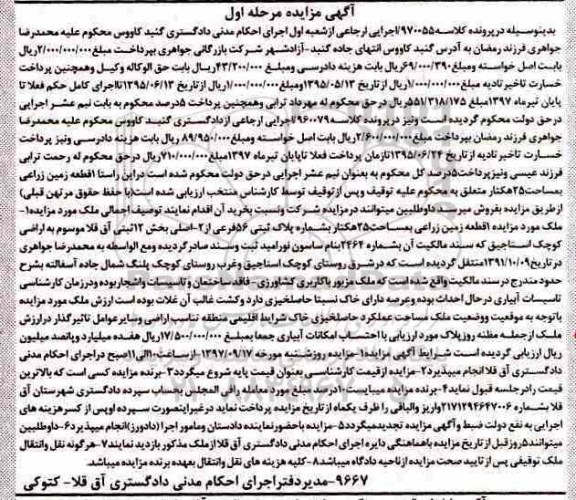 آگهی مزایده مرحله اول
بدینوسیله در پرونده کلاسه ۹۷۰۰۵۵/اجرایی ارجاعی از شعبه اول اجرای احکام مدنی دادگستری گنبد کاووس محکوم علیه محمدرضا
جواهری فرزند رمضان به آدرس گنبد کاووس انتهای جاده گنبد-آزادشهر شرکت بازرگانی جواهری بپرداخت مبلغ ۲/۰۰۰/۰۰۰/۰۰۰ریال
بابت اصل خواسته ومبلغ ۶۹/۰۰۰/۳۹۰ریال بابت هزینه دادرسی ومبلغ ۴۳/۲۰۰/۰۰۰ریال بابت حق الوکاله وکیل وهمچنین پرداخت
خسارت تاخیر تادیه مبلغ ۱/۰۰۰/۰۰۰/۰۰۰ریال از تاریخ ۱۳۹۵/۰۵/۱۳ ومبلغ ۱/۰۰۰/۰۰۰/۰۰۰ریال از تاریخ ۱۳۹۵/۰۶/۱۳ تااجرای کامل حکم فعلا تا
پایان تیرماه ۱۳۹۷مبلغ ۵۵۱/۳۱۸/۱۷۵ریال درحق محکوم له مهرداد ترابی وهمچنین پرداخت ۵درصد محکوم به بابت نیم عشر اجرایی
درحق دولت محکوم گردیده است ونیز در پرونده کلاسه ۹۶۰۰۷۹/اجرایی ارجاعی ازدادگستری گنبد کاووس محکوم علیه محمدرضا
جواهری فرزند رمضان بپرداخت مبلغ ۲/۶۰۰/۰۰۰/۰۰۰ریال بابت اصل خواسته ومبلغ ۸۹/۹۵۰/۰۰۰ ریال بابت هزینه دادرسی ونیز پرداخت
خسارت تاخیر تادیه از تاریخ ۱۳۹۵/۰۶/۲۴ تازمان پرداخت فعلا تاپایان تیرماه ۱۳۹۷مبلغ ۷۱۰/۰۰۰/۰۰۰ریال درحق محکوم له رحمت ترابی
فرزند عیسی ونیزپرداخت ۵درصد کل محکوم به بعنوان نیم عشر اجرایی درحق دولت محکوم شده است دراین راستا ۱قطعه زمین زراعی
بمساحت ۲۵هکتار متعلق به محکوم علیه توقیف وپس ازتوقیف توسط کارشناس منتخب ارزیابی شده است(با حفظ حقوق مرتهن قبلی)
از طریق مزایده بفروش میرسد داوطلبین میتوانند درمزایده شرکت ونسبت بخرید آن اقدام نمایند توصیف اجمالی ملک مورد مزایده ۱-
ملک مورد مزایده ۱قطعه زمین زراعی بمساحت ۲۵هکتار بشماره پلاک ثبتی ۵۶ فرعی از ۲-اصلی بخش ۱۲ ثبتی آق قلا موسوم به اراضی
کوچک استاجیق که سند مالکیت آن بشماره ۲۴۶۴ بنام ساسون نورامید ثبت وسند صادر گردیده ومع الواسطه به محمدرضا جواهری
در تاریخ ۱۳۹۱/۱۰/۰۹ منتقل گردیده است که درشرق روستای کوچک استاجیق وغرب روستای کوچک پلنگ شمال جاده آسفالته بشرح
حدود مندرج در سند مالکیت واقع شده است که ملک مزبور باکاربری کشاورزی- فاقد ساختمان وتاسیسات واشجاربوده ودرزمان کارشناسی
تاسیسات آبیاری درحال احداث بوده وعرصه دارای خاک نسبتا حاصلخیزی دارد وکشت غالب آن غلات بوده است ارزش ملک مورد مزایده
باتوجه به موقعیت ووضعیت ملک مساحت عملکرد حاصلخیزی خاک شرایط اقلیمی منطقه تناسب اراضی وسایر عوامل تاثیرگذار درارزش
ملک از جمله مظنه روزپلاک مورد ارزیابی با احتساب امکانات آبیاری جمعا بمبلغ ۱۷/۵۰۰/۰۰۰/۰۰۰ریال هفده میلیارد وپانصد میلیون
ریال ارزیابی گردیده است شرایط آگهی مزایده ۱-مزایده روزشنبه مورخه ۱۳۹۷/۰۹/۱۷ از ساعت ۱۰الی ۱۱صبح دراجرای احکام مدنی
دادگستری آق قلاانجام میپذیرد ۲-مزایده از قیمت کارشناسی بعنوان قیمت پایه شروع میگردد ۳-برنده مزایده کسی است که بالاترین
قیمت رادر جلسه قبول نماید ۴-برنده مزایده میبایست ۱۰درصد مبلغ مورد معامله رافی المجلس بحساب سپرده دادگستری شهرستان آق
قلا بشماره ۲۱۷۱۲۹۴۶۴۷۰۰۶ واریز والباقی را ظرف یکماه از تاریخ مزایده پرداخت نماید درغیراینصورت سپرده اوپس از کسرهزینه های
اجرایی به نفع دولت ضبط وآگهی مزایده تجدیدمیگردد ۵-مزایده باحضورنماینده دادستان ومامور اجرا(دادورز)انجام میپذیرد ۶-داوطلبین
میتوانند ۵روز قبل از تاریخ مزایده باهماهنگی دایره اجرای احکام مدنی دادگستری آق قلااز ملک مذکور بازدید نمایند ۷-هرگونه نقل وانتقال
ملک توقیفی پس از تایید صحت مزایده ازناحیه دادگاه میباشد ۸-کلیه هزینه های نقل وانتقال بعهده برنده مزایده میباشد.
۹۶۶۷-مدیردفتراجرای احکام مدنی دادگستری آق قلا- کتوکی